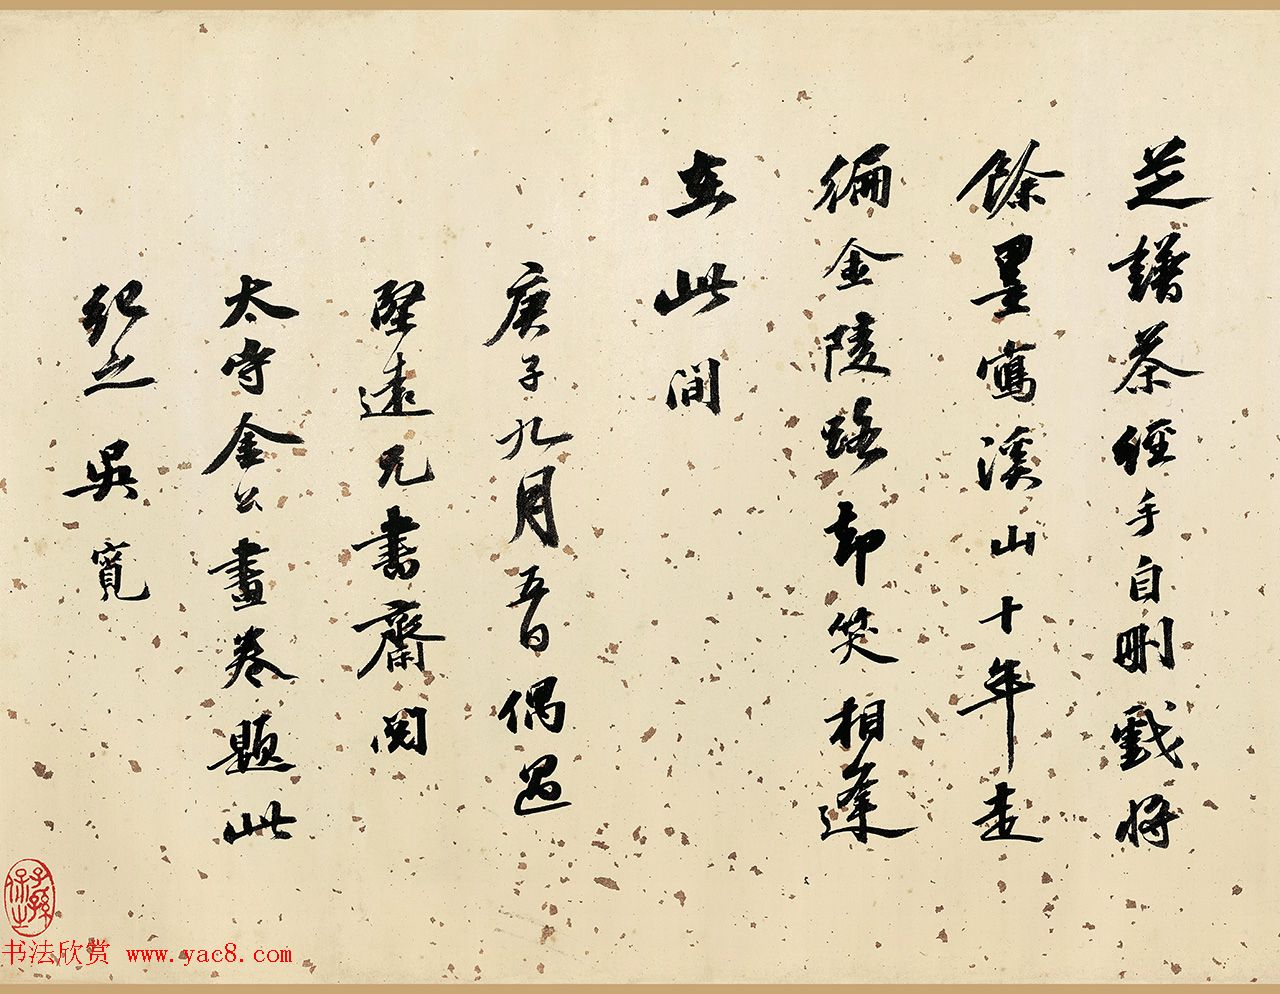 芝譜茶經手自刪戲將
餘墨寫溪山十年走
徧金陵路却笑相逢
在此間
庚子九月五日偶過
堅遠兄書齋閱
太守金公畫卷題此
紀之 吳寬
子孫永之
书法欣赏 www.yac8.com